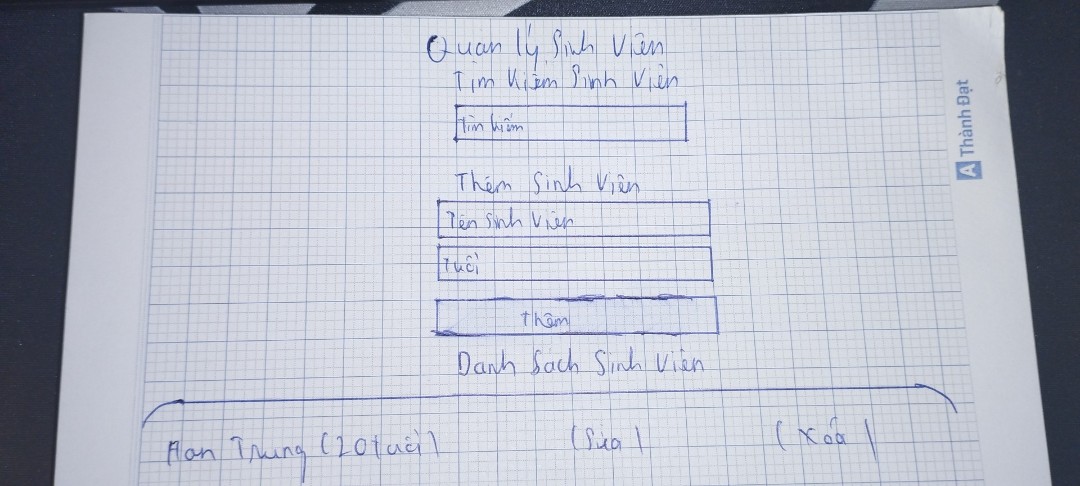 Quan lý Sinh Viên
Tìm Kiếm Sinh Viên
Tìm kiếm
Thêm Sinh Viên
Tên Sinh Viên
Tuổi
Thêm
Danh Sách Sinh Viên
Trung (20 tuổi) (Sửa) (Xoá)
A Thành Đạt